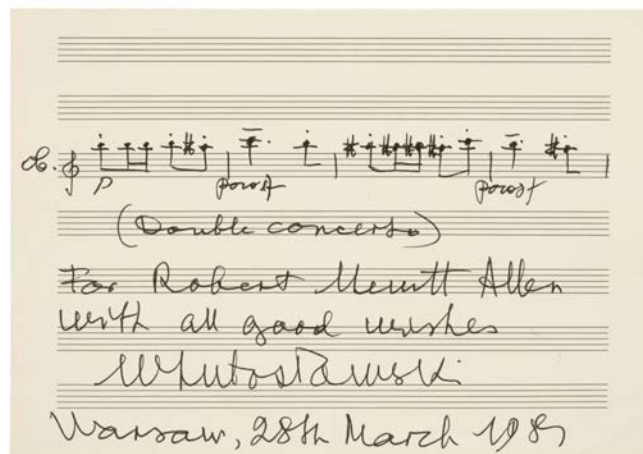 Ob. p poco sf poco sf
(Double concerto)
For Robert Merritt Allen
with all good wishes
WLutosławski
Warsaw, 28th March